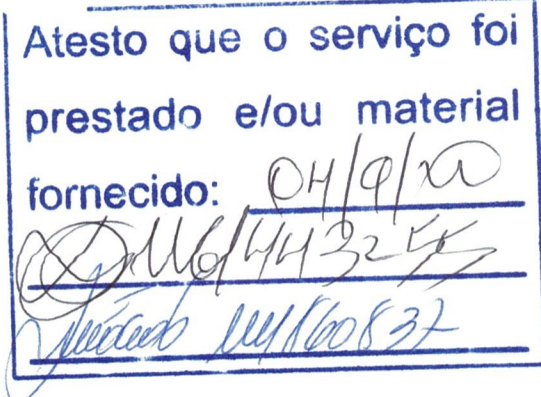 Atesto que o serviço foi
prestado e/ou material
fornecido: 04/9/20
M6/443255
M1860837